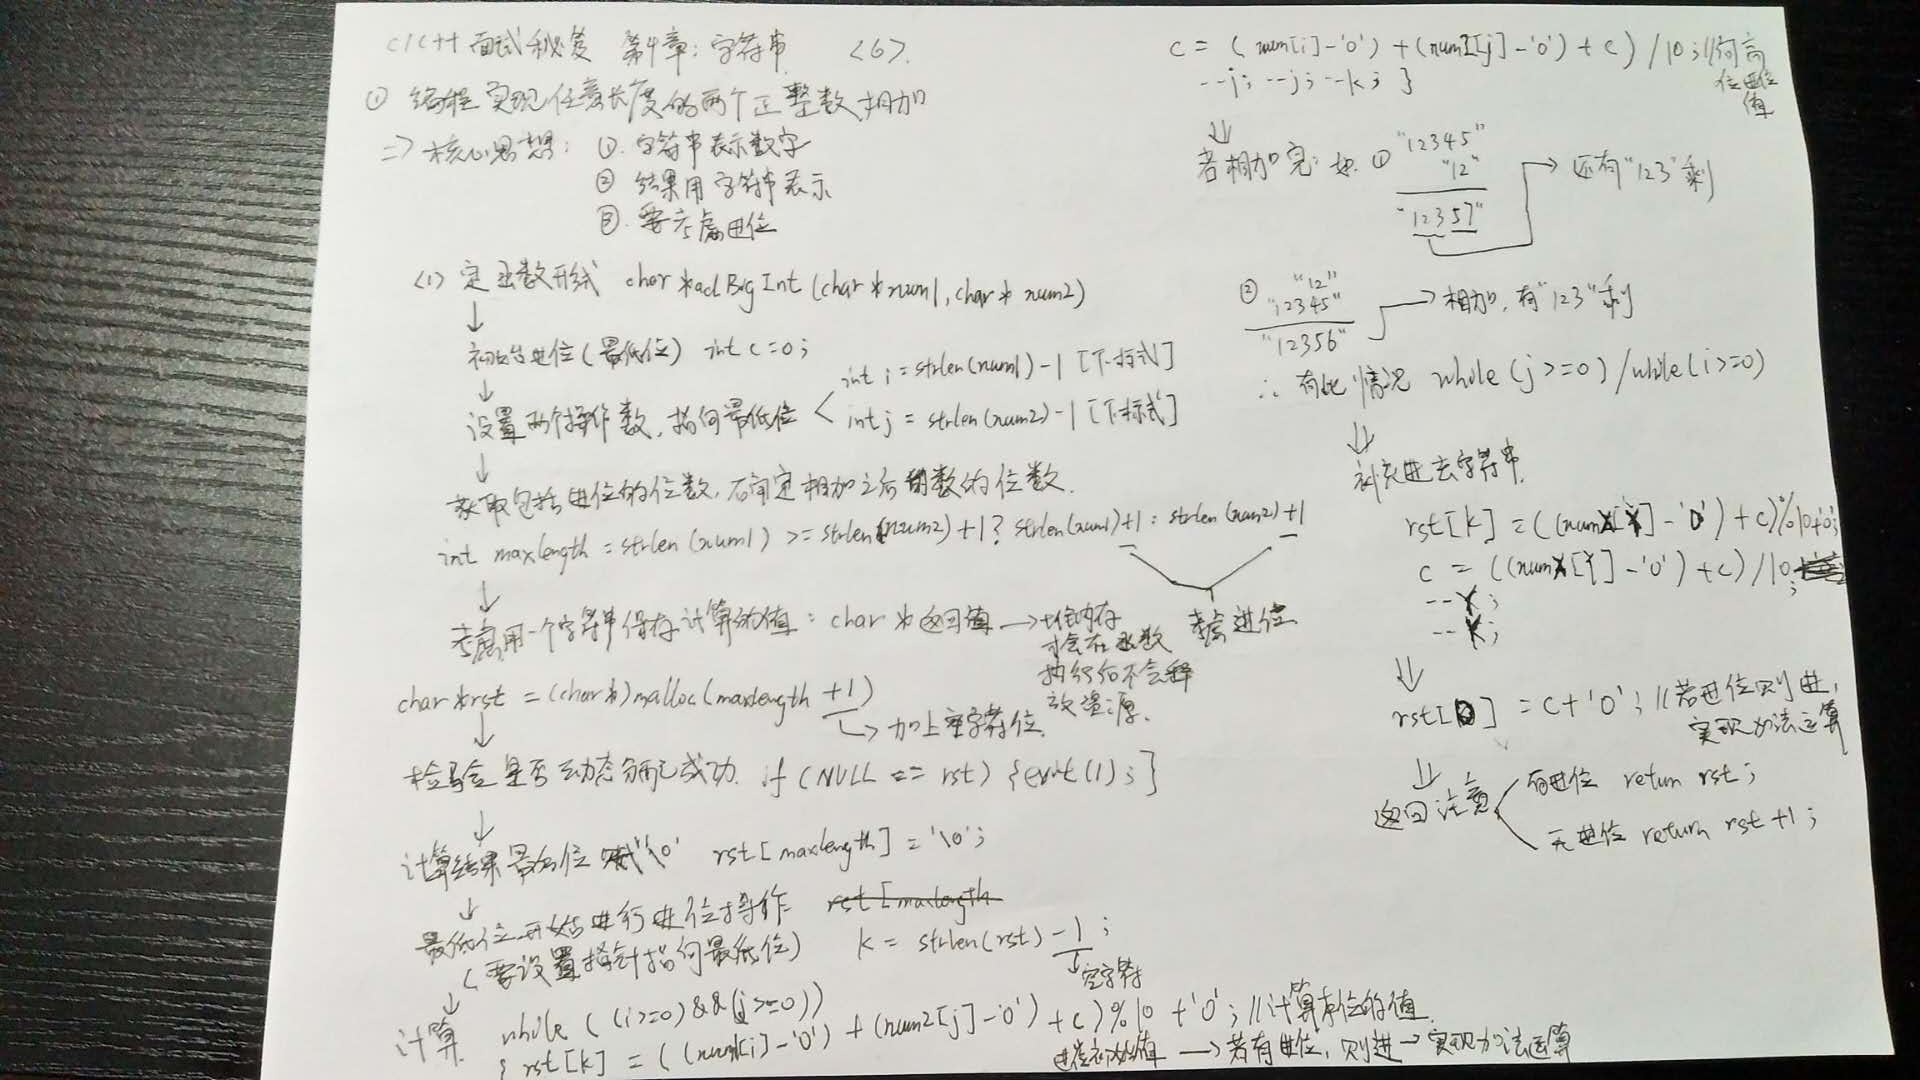 C/C++ 面试秘笈 第4章：字符串 <6>.
① 编程实现任意长度的两个正整数相加
=> 核心思想： ①. 字符串表示数字
② 结果用字符串表示
③. 要考虑进位
<1> 定函数形式 char *adBigInt (char *num1, char * num2)
↓
初始进位(最低位) int c=0;
↓
int i = strlen(num1) - 1 [下标式]
设置两个操作数，指向最低位 <
int j = strlen(num2) - 1 [下标式]
↓
获取包括进位的位数，确定相加之后的数的位数.
int maxlength = strlen (num1) >= strlen(num2) +1 ? strlen(num1)+1 : strlen (num2) +1
考虑进位
↓
考虑用一个字符串保存计算的值： char * 返回值 → 堆内存
才会在函数
执行后不会释
放资源.
char *rst = (char*) malloc (maxlength +1)
↳ 加上空字符位.
↓
检验是否动态分配成功. if (NULL == rst) {exit (1); }
↓
计算结果最高位赋'\0' rst[maxlength] = '\0';
↓
最低位开始进行进位操作
(要设置指针指向最低位) k = strlen(rst) - 1 ;
空字符
↓
计算. while ( (i>=0) && (j>=0))
{ rst[k] = ( (num1[i] - '0') + (num2[j] - '0') + c) % 10 + '0' ; //计算本位的值.
→ 若有进位，则进 → 实现加法运算
c = ( num[i] - '0') + (num2[j] - '0') + c) / 10 ; //向高
位进位
值
--i; --j; --k; }
⇓
若相加完：如. ① "12345"
"12"
"12357"
→ 还有"123"剩
② "12"
"12345"
"12356"
→ 相加，有"123"剩
∴ 有此情况 while (j >=0) / while (i >=0)
⇓
补充进去字符串.
rst[k] = ((numX[Y] - '0') + c)%10+'0';
c = ((numX[Y] - '0') + c) /10;
--Y;
--k;
⇓
rst[0] = c + '0' ; //若进位则进，
实现加法运算
⇓
有进位 return rst ;
返回注意 <
无进位 return rst +1 ;